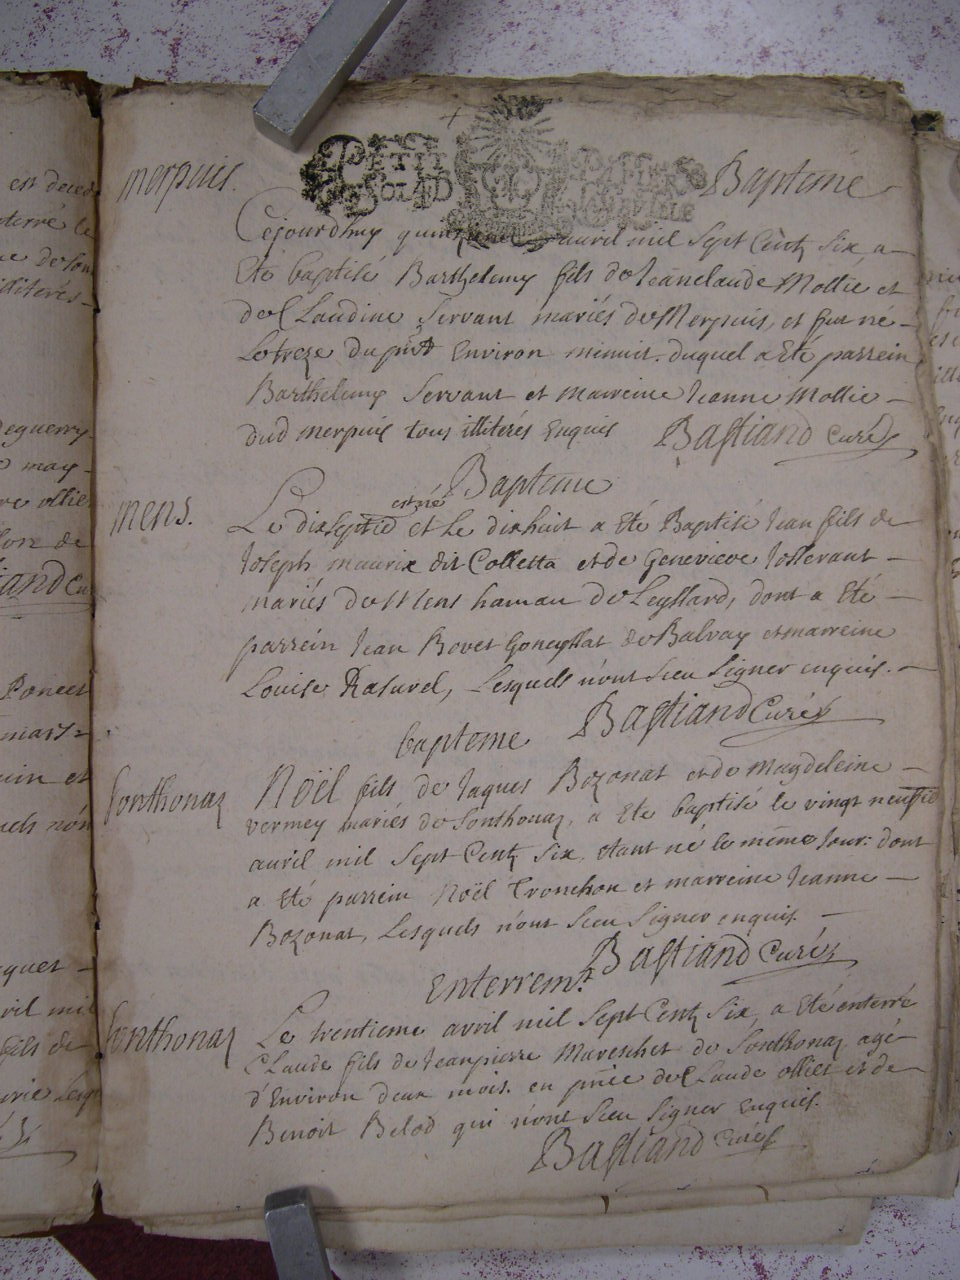 merpuis.
PETIT
SOL AD
PAPIERS
Bapteme
Cejourdhuy avril mil sept Centz six, a
Eté baptisé Barthelemy fils de Jeanclaude Mollie et
de Claudine Servant mariés de Merpuis, et fut né
Le treze du pnt Environ minuit. duquel a Eté parrein
Barthelemy Servant et marreine Jeanne Mollie
dud merpuis tous illiterés Enquis Bastiand curé
Bapteme
mens.
est né
Le dixseptie et Le dixhuit a Eté Baptisé Jean fils de
Joseph maurix dit Colletta et de Genevieve Josserant
mariés de Mens hamau de Leyssard, dont a Eté
parrein Jean Bovet de Balvay et marreine
Louise Rasurel, Lesquels n'ont sceu signer enquis.
Bastiand Curé
bapteme
sonthonaz
Noël fils de Jaques Bozonat et de Magdeleine
vermey mariés de sonthonaz, a Eté baptisé le vingt neuf
avril mil sept Centz six, etant né le même Jour. dont
a Eté parrein Noël Tronchon et marreine Jeanne
Bozonat, Lesquels n'ont sceu signer enquis
Bastiand Curé
Enterremt.
sonthonaz
Le trentieme avril mil sept Centz six, a Eté enterré
Claude fils de Jeanpierre Mareschet de Sonthonaz agé
d'Environ deux mois. en pnce de Claude olliet et de
Benoit Belod qui n'ont sceu signer Enquis.
Bastiand curé